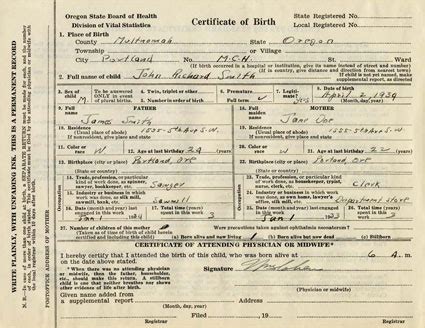 Oregon State Board of Health
Division of Vital Statistics
Certificate of Birth
State Registered No.
Local Registered No.
1. Place of Birth
County Multnomah State Oregon
Township or Village
City Portland No. M.C.H. St. Ward
(If birth occurred in a hospital or institution, give its name instead of street and number)
2. Full name of child John Richard Smith
If child is not yet named, make supplemental report, as directed.
3. Sex of Child M
To be answered ONLY in event of plural births.
4. Twin, triplet or other
5. Number in order of birth
6. Premature
Full term
7. Legitimate?
8. Date of birth April 2, 1934
(Month, day, year)
FATHER
9. Full name James Smith
10. Residence
(Usual place of abode)
(If nonresident, give place and State) 1535-5th Ave S.W.
11. Color or race W
12. Age at last birthday 24 (years)
13. Birthplace (city or place) Portland, Ore
(State or country)
14. Trade, profession, or particular kind of work done, as spinner, sawyer, bookkeeper, etc. Sawyer
15. Industry or business in which work was done, as silk mill, sawmill, bank, etc. Sawmill
16. Date (month and year) last engaged in this work
17. Total time (years) spent in this work 3
MOTHER
18. Full maiden name Jane Doe
19. Residence
(Usual place of abode)
(If nonresident, give place and State) 1535-5th Ave S.W.
20. Color or race W
21. Age at last birthday 22 (years)
22. Birthplace (city or place) Portland, Ore
(State or country)
23. Trade, profession, or particular kind of work done, as housekeeper, typist, nurse, clerk, etc. Clerk
24. Industry or business in which work was done, as own home, lawyer's office, silk mill, etc. Department store
25. Date (month and year) last engaged in this work
26. Total time (years) spent in this work
Occupation
27. Number of children of this mother
(Taken as of time of birth of child herein certified and including this child)
(a) Born alive and now living 1
(b) Born alive but now dead
(c) Stillborn
Were precautions taken against ophthalmia neonatorum?
CERTIFICATE OF ATTENDING PHYSICIAN OR MIDWIFE*
I hereby certify that I attended the birth of this child, who was born alive at 6 A. m.
on the date above stated.
*When there was no attending physician or midwife, then the father, householder, etc., should make this return. A stillborn child is one that neither breathes nor shows other evidences of life after birth.
Signature
Given name added from
a supplemental report
(Month, day, year)
Registrar
Address
Filed , 19
Registrar
WRITE PLAINLY, WITH UNFADING INK. THIS IS A PERMANENT RECORD
POSTOFFICE ADDRESS OF MOTHER